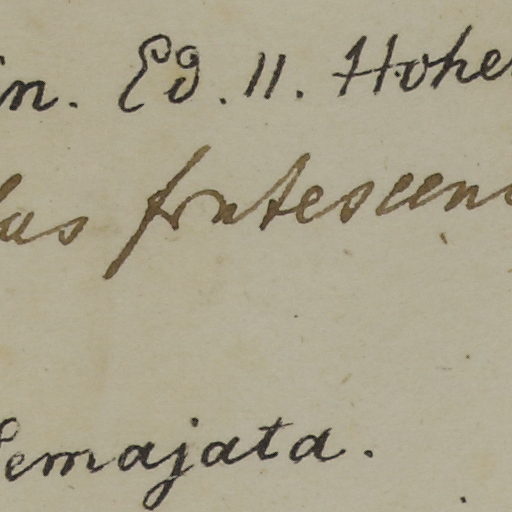 in. Ed. 11. Hohe
lus frutescens
emajata.